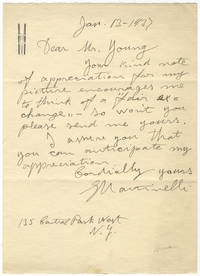 Jan. 13-1937
Dear Mr. Young
You kind note
of appreciation for my
picture encourages me
to think of a "fair ex-
change". - So won't you
please send me yours.
I assure you that
you can anticipate my
appreciation.
Cordially yours
GMartinelli
135 Central Park West
N.Y.